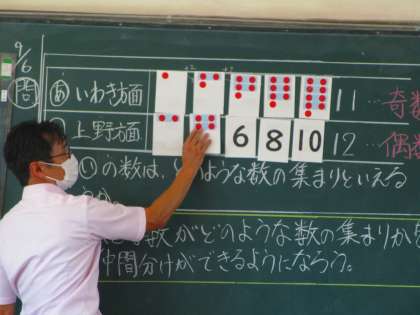 9/6
問 あ いわき方面 11 …奇数
上野方面 6 8 10 12 …偶数
いの数は、どのような数の集まりといえる
数がどのような数の集まりか
仲間分けができるようになろう。